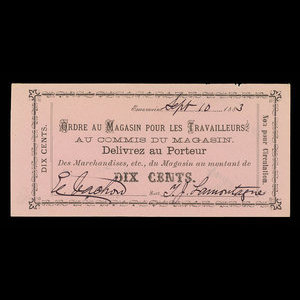 Sept 10 1883
ORDRE AU MAGASIN POUR LES TRAVAILLEURS.
AU COMMIS DU MAGASIN.
Delivrez au Porteur
Des Marchandises, etc., du Magasin au montant de
DIX CENTS.
T. J. Lamontagne
DIX CENTS.
Not for Circulation